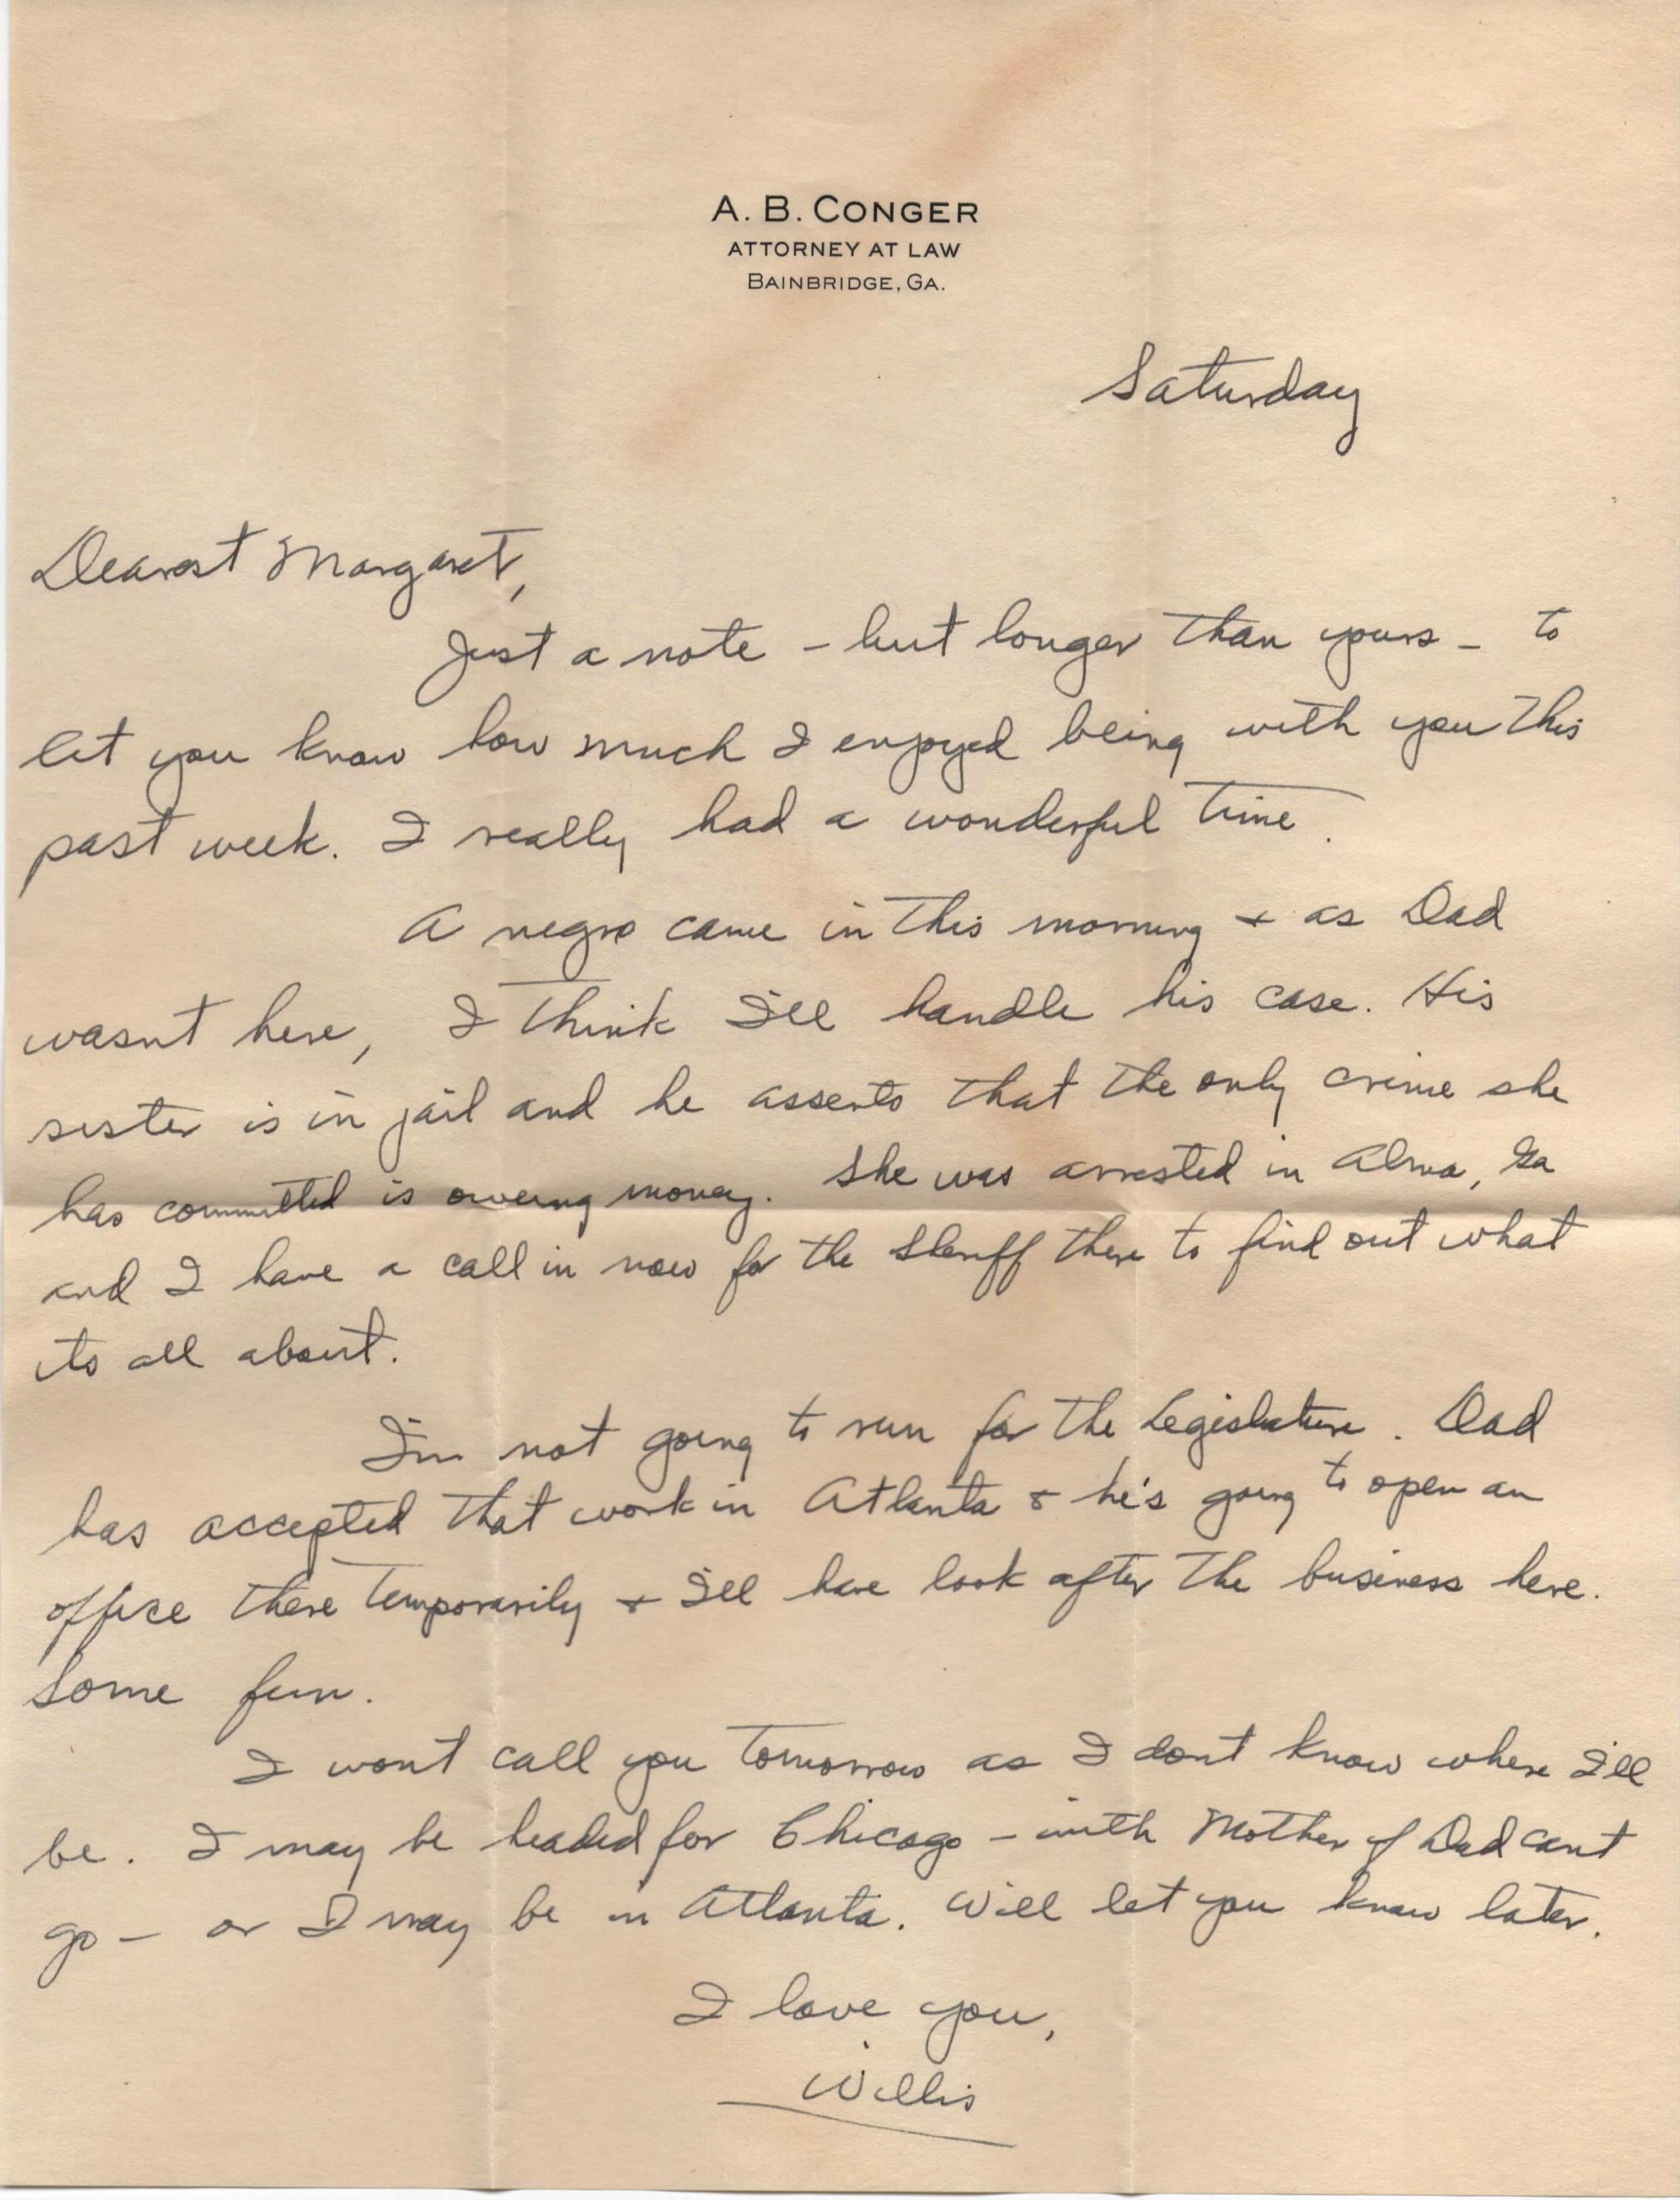 A. B. CONGER
ATTORNEY AT LAW
BAINBRIDGE, GA.
Saturday
Dearest Margaret,
Just a note – but longer than yours – to
let you know how much I enjoyed being with you this
past week. I really had a wonderful time.
A negro came in this morning & as Dad
wasnt here, I think I'll handle his case. His
sister is in jail and he asserts that the only crime she
has committed is owering money. She was arrested in Alma, Ga
and I have a call in now for the Sheriff there to find out what
its all about.
I'm not going to run for the Legislature. Dad
has accepted that work in Atlanta & he's going to open an
office there temporarily & I'll have look after the business here.
Some fun.
I wont call you tomorrow as I dont know where I'll
be. I may be headed for Chicago – with Mother if Dad cant
go – or I may be in Atlanta. Will let you know later.
I love you,
Willis